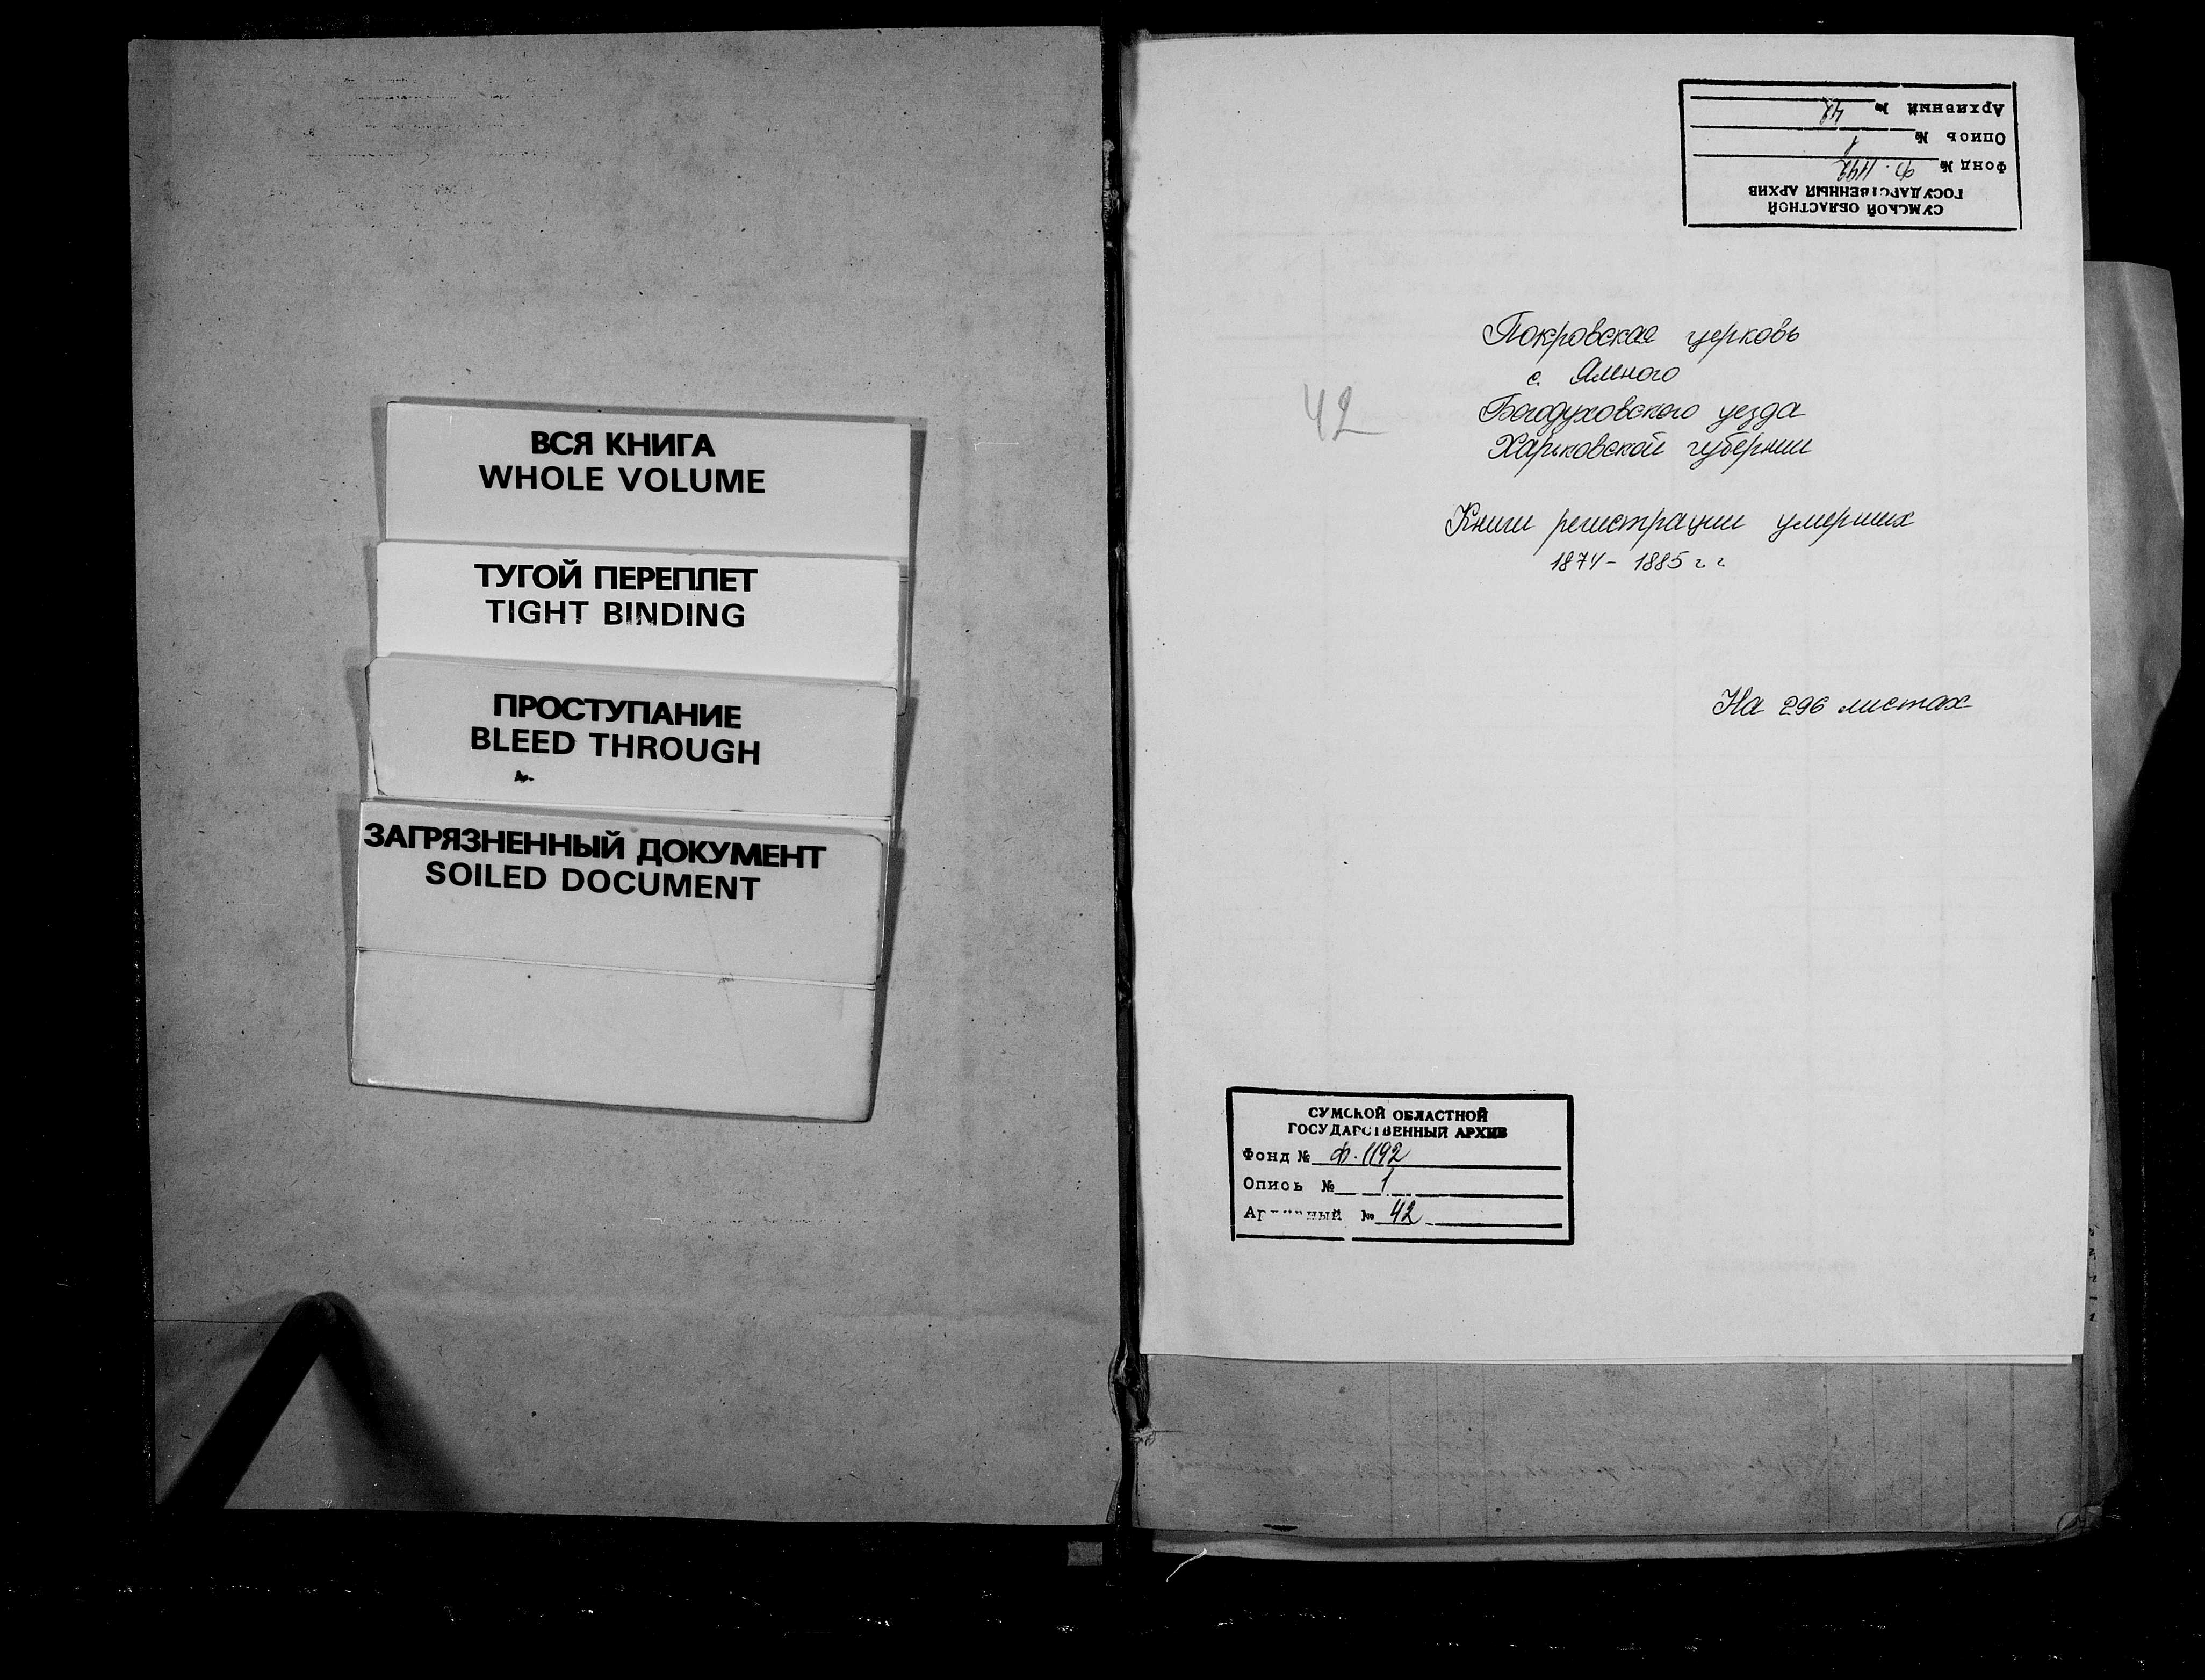 ВСЯ КНИГА
WHOLE VOLUME
ТУГОЙ ПЕРЕПЛЕТ
TIGHT BINDING
ПРОСТУПАНИЕ
BLEED THROUGH
ЗАГРЯЗНЕННЫЙ ДОКУМЕНТ
SOILED DOCUMENT
СУМСКОЙ ОБЛАСТНОЙ
ГОСУДАРСТВЕННЫЙ АРХИВ
Фонд № Ф. 1192
Опись № 1
Архивный № 42
Покровская церковь
с. Ямного
Богодуховского уезда
Харьковской губернии
42
Книги регистрации умерших
1874 - 1885 г г
На 296 листах
СУМСКОЙ ОБЛАСТНОЙ
ГОСУДАРСТВЕННЫЙ АРХИВ
Фонд № Ф. 1192
Опись № 1
Архивный № 42